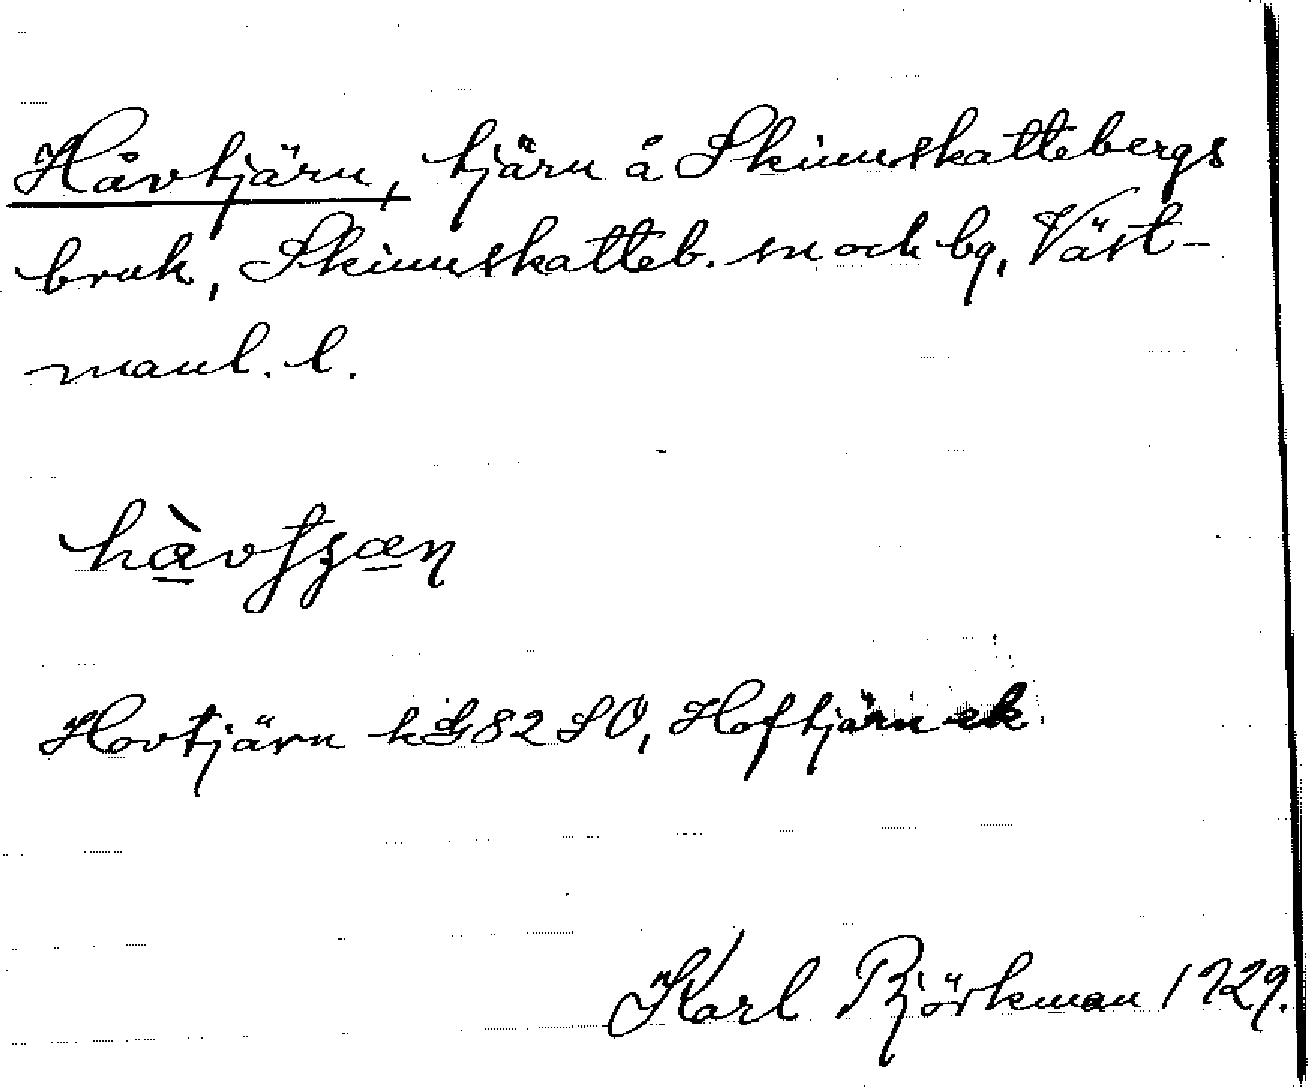 Håvtjärn, tjärn å Skinnskattebergs
bruk, Skinnskatteb. sn och bg, Väst-
manl. l.
Hovtjärn kG82 SO, Hoftjärn ek.
Karl Björkman 1929.